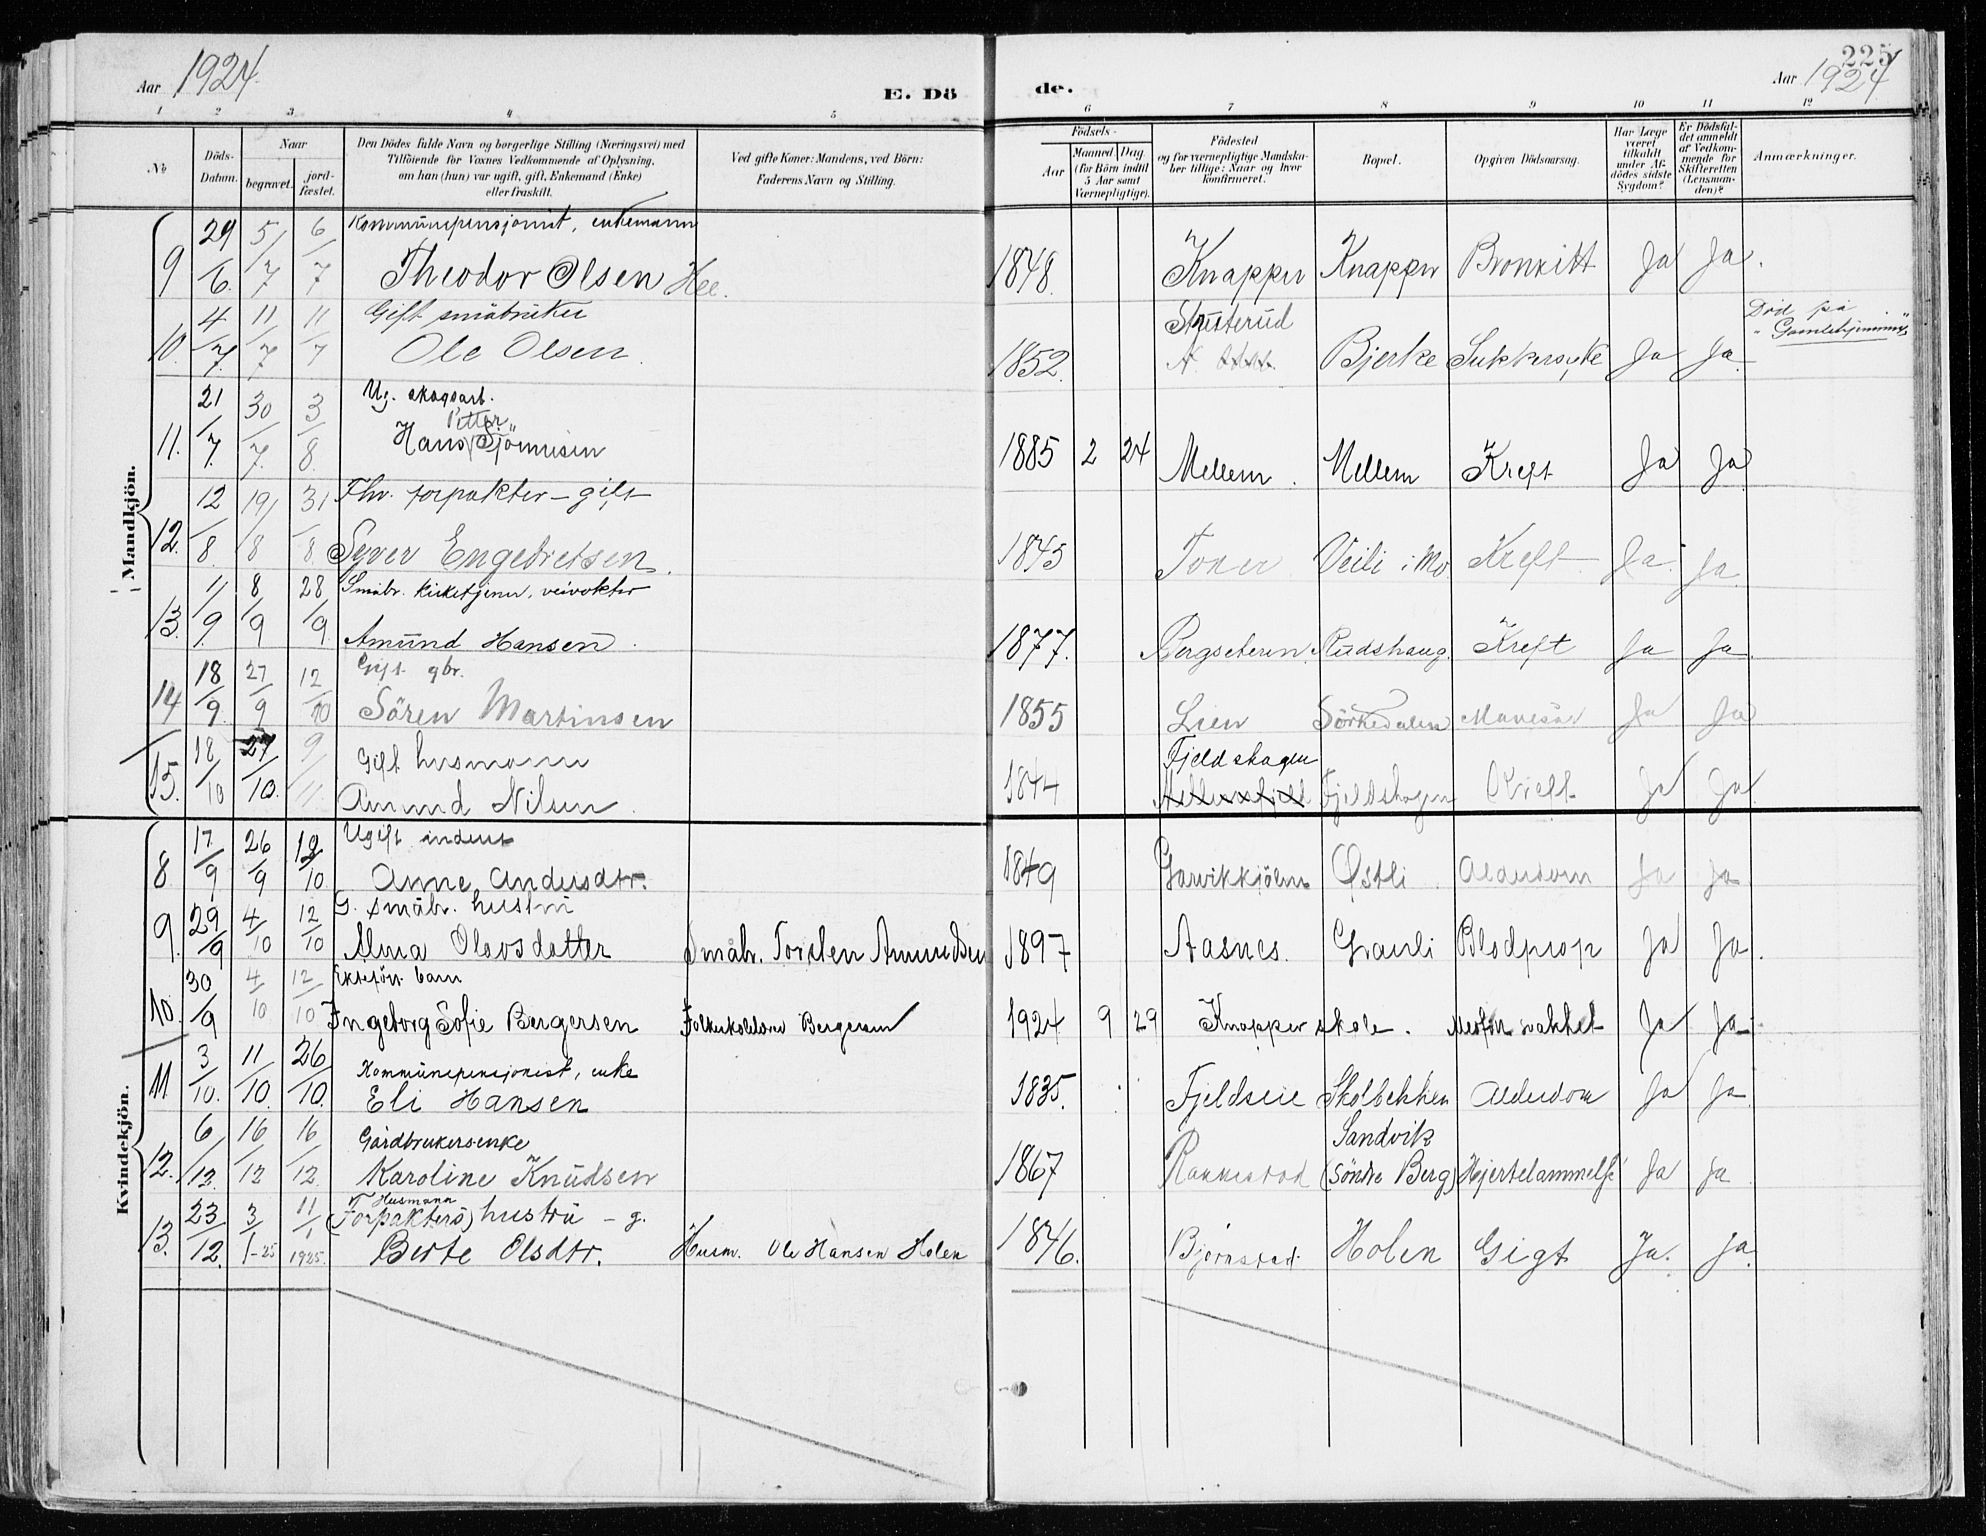 Aar 1924.
E. Dö
de.
225
Aar 1924
1 2 3 4 5 6 7 8 9 10 11 12
No
Döds-Datum.
Naar
begravet.
jord-fæstet.
Den Dödes fulde Navn og borgerlige Stilling (Næringsvei) med
Tilföiende for Voxnes Vedkommende af Oplysning,
om han (hun) var ugift, gift, Enkemand (Enke)
eller fraskilt.
Ved gifte Koner: Mandens, ved Börn:
Faderens Navn og Stilling.
Födsels-
Aar
Maaned. Dag.
(for Börn indtil
5 Aar samt
Værnepligtige).
Födested
og for værnepligtige Mandska-
ber tillige: Naar og hvor
konfirmeret.
Bopæl.
Opgiven Dödsaarsag.
Har Læge
været
tilkaldt
under Af-
dödes sidste
Sygdom?
Er Dödsfal-
det anmeldt
af Vedkom-
mende for
Skifteretten
(Lensman-
den)?
Anmærkninger.
Mandkjön.
Kommunepensjonist, enkemann
9 29/6. 5/7 6/7 Theodor Olsen 1848. Knapper Knapper Bronkitt Ja Ja.
Gift småbruker
Død på
"Gamlehjemmet"
10. 4/7. 11/7 11/7 Ole Olsen. 1852. Bjerke Sukkersyke Ja Ja
Ug. skogsarb.
Petter
11. 21/7. 30/7. 3/8. Hans 1885 2 24 Mellem. Mellem Kreft Ja Ja
forpakter – gift
12. 12/8. 19/8 31/8 Syver Engebretsen. 1845 Toner Veili i Mo Kreft Ja. Ja.
Småbr. kirketjener, veivokter
13. 1/9. 8/9 28/9. Amund Hansen. 1877. Bergseteren. Rudshaug. Kreft Ja Ja.
Gift gbr.
14 18/9. 27/9 12/10 Sören Martinsen 1855 Lien Sörkedalen Mavesår Ja Ja
Gift husmann
Fjeldskogen
15. 18/10 27/10. 9/11. Amund Nilsen. 1844 Fjeldskogen Kreft Ja Ja
Kvindekjön.
Ugift inderst
8 17/9 26/9 12/10 Anne Andersdtr. 1849 Østli Alderdom Ja Ja
G. småbr. hustru
9. 29/9 4/10 12/10 Alma Olavsdatter Småbr. Torsten Amundsen 1897 Aasnes. Grauli Blodprop Ja Ja.
Ektefön. barn
10. 30/9 4/10 12/10 Ingeborg Sofie Bergersen Bergersen 1924 9 29 Knapper skole. Medfött svakhet Ja Ja
Kommunepensjonist, enke
11. 3/10. 11/10. 26/10. Eli Hansen 1835. Fjeldseie Skolbekken Alderdom Ja Ja
Gårdbrukersenke
Sandvik
12. 6/12. 16/12 16/12. Karoline Knudsen 1867 Rakkestad (söndre Berg) Hjertelammelse Ja Ja
Husmann
(Forpakters) hustru – g.
13. 23/12. 3/1-25 11/1 1925. Berte Olsdtr. Husm. Ole Hansen Holen 1846. Björnstad Holen Gigt Ja. Ja.